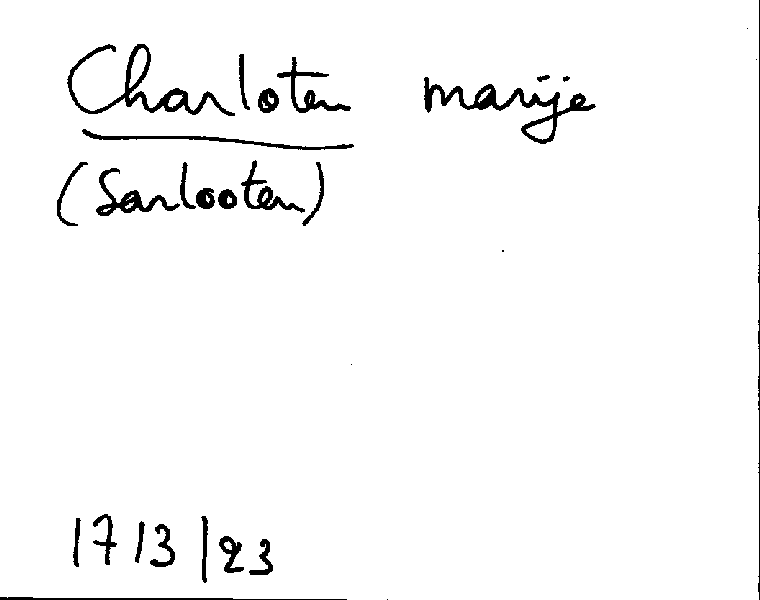 Charloten marije
(Sarlooten)
1713/23